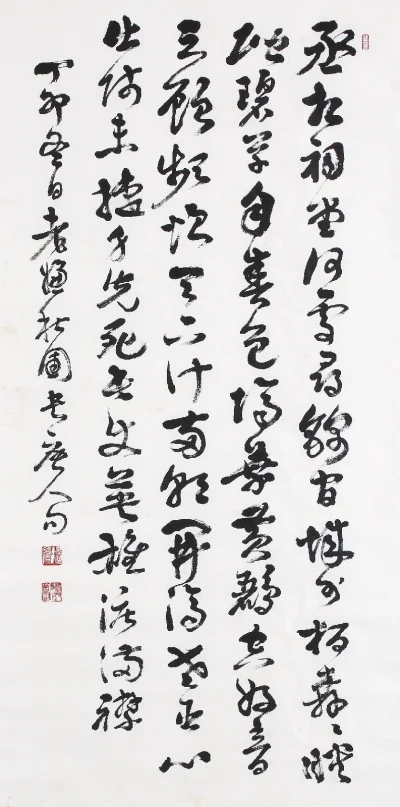 丞相祠堂何處尋錦官城外柏森々映
階碧草自春色隔葉黃鸝空好音
三顧頻煩天下計兩朝開濟老臣心
出師未捷身先死長使英雄淚滿襟
丁卯冬日老秋圃書唐人句